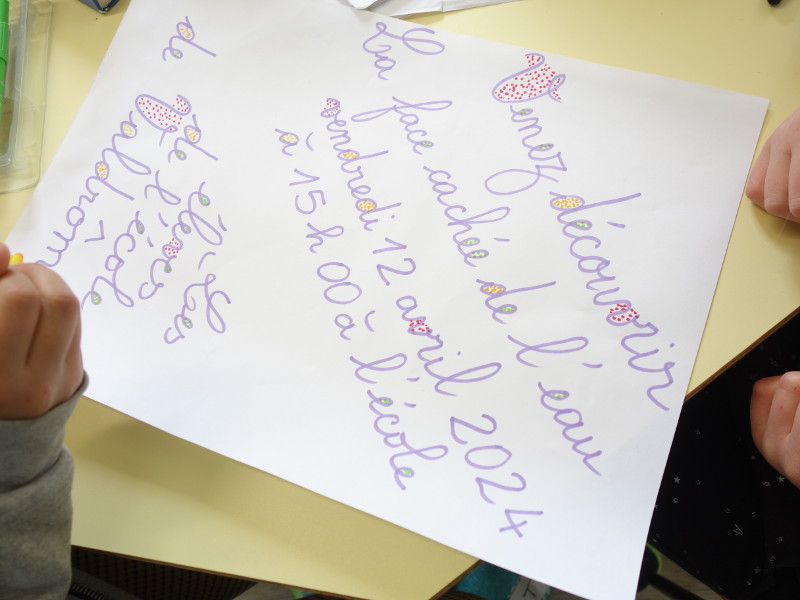 Venez découvrir
La face cachée de l'eau
vendredi 12 avril 2024
à 15 h 00 à l'école
Les élèves
de l'école
de Valdrôm